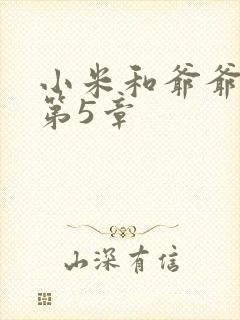 小米和爷爷
第5章
山深有信